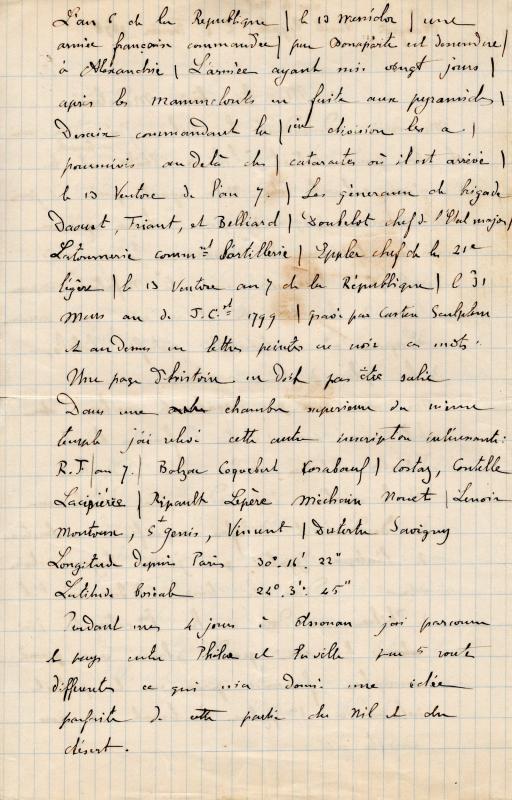 L'an 6 de la Republique | le 13 messidor | une
armée française commandée | par Bonaparte est descendue |
à Alexandrie | L'armée ayant mis vingt jours |
après les mammelouks en fuite aux pyramides |
Desaix commandant la | 1ère division les a |
poursuivis au delà des | cataractes où il est arrivé |
le 13 Ventose de l'an 7. | Les généraux de brigade
Daoust, Friant, et Belliard | Donzelot chef de l'Etat major |
Latournerie commnt l'artillerie | Eppler chef de la 21e
légère | le 13 Ventose an 7 de la République | 3
Mars an de J.C.st 1799 | gravé par Castex Sculpteur
et au dessus en lettres peintes en noir ces mots :
Une page d'histoire ne doit pas être salie
Dans une chambre superieure du même
temple j'ai relevé cette autre inscription intéressante :
R.F | an 7. | Balzac Coquebert Corabœuf | Costaz, Coutelle
Lacipière | Ripault Lepère Méchain Nouet | Lenoir
Montour, St Genis, Vincent | Dutertre Savigny
Longitude depuis Paris 30°. 16'. 22"
Latitude boréale 24°. 3'. 45"
Pendant mes 4 jours à Assouan j'ai parcouru
le pays entre Philae et la ville par 5 routes
différentes ce qui m'a donné une idée
parfaite de cette partie du Nil et du
désert.